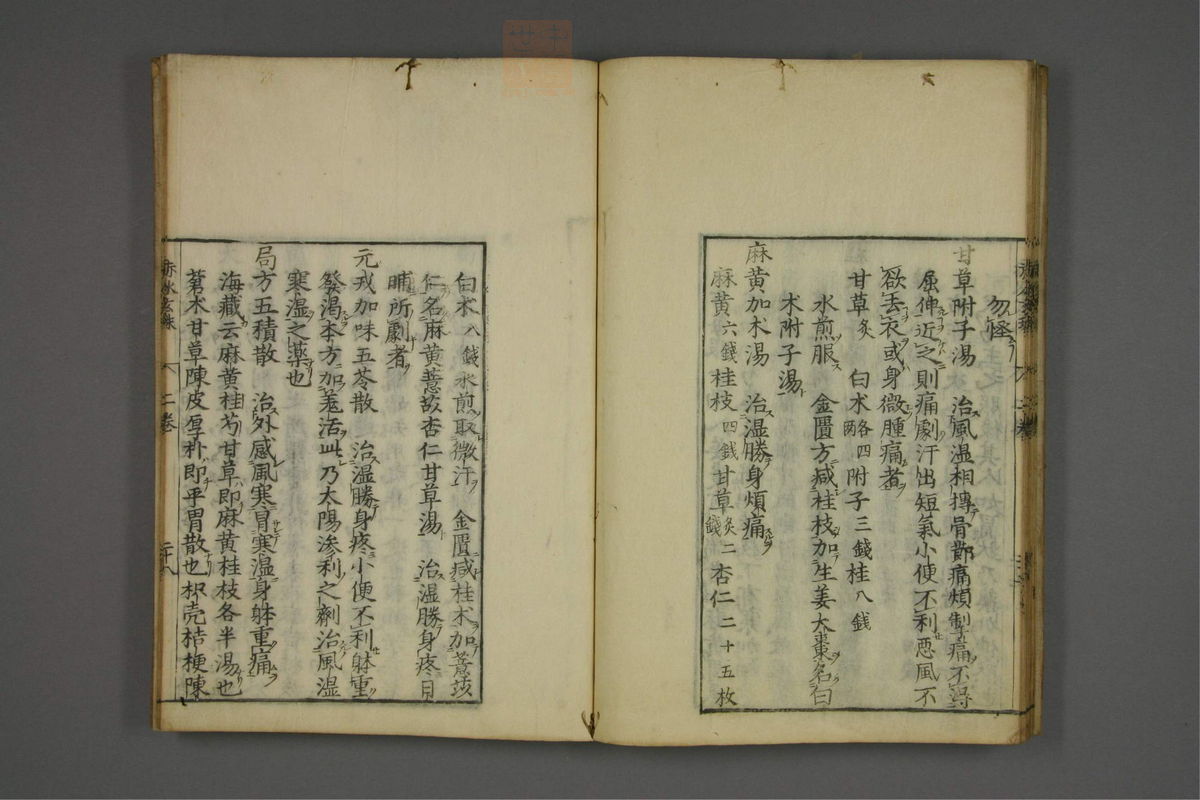 勿怪
甘草附子湯　治風湿相搏骨節痛煩掣痛不得
屈伸近之則痛劇汗出短氣小便不利悪風不
欲去衣或身微腫痛者
甘草炙　白术各四両　附子三錢桂八銭
水煎服　金匱方减桂枝加生姜大棗名白
术附子湯
麻黄加术湯　治湿勝身煩痛
麻黄六錢桂枝四銭甘草炙二錢杏仁二十五枚
白术八錢水煎取微汗　金匱减桂术加薏苡
仁名麻黄薏苡杏仁甘草湯　治湿勝身疼日
晡所劇者
元戎加味五苓散　治湿勝身疼小便不利躰重
發渇本方加羗活此乃太陽渗利之劑治風湿
寒湿之薬也
局方五積散　治外感風寒冐寒湿身躰重痛
海藏云麻黄桂芍甘草即麻黄桂枝各半湯也
蒼术甘草陳皮厚朴即平胃散也枳壳桔梗陳
赤水玄珠　二卷　二十八